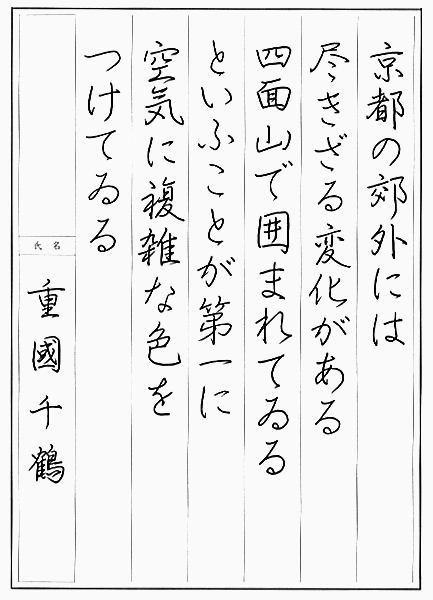 京都の郊外には
尽きざる変化がある
四面山で囲まれてゐる
といふことが第一に
空気に複雑な色を
つけてゐる
氏名
重國千鶴